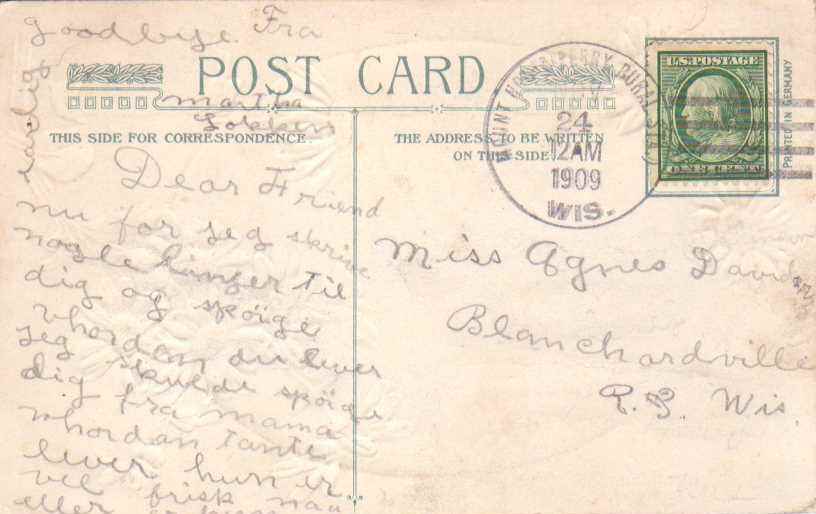 goodbye Fra
Martha
POST CARD
THIS SIDE FOR CORRESPONDENCE
THE ADDRESS TO BE WRITTEN
ON THIS SIDE
Dear Friend
nu for jeg skrive
nogle linger til
dig og spöige
whordan du lever
jeg skulde spöige
dig fra mama
whordan tante
lever hun er
vel frisk naa
eller
MOUNT HOREB
RURAL STA
24
12 AM
1909
WIS.
U.S. POSTAGE
ONE CENT
PRINTED IN GERMANY
Miss Agnes
Blanchardville
Wis.